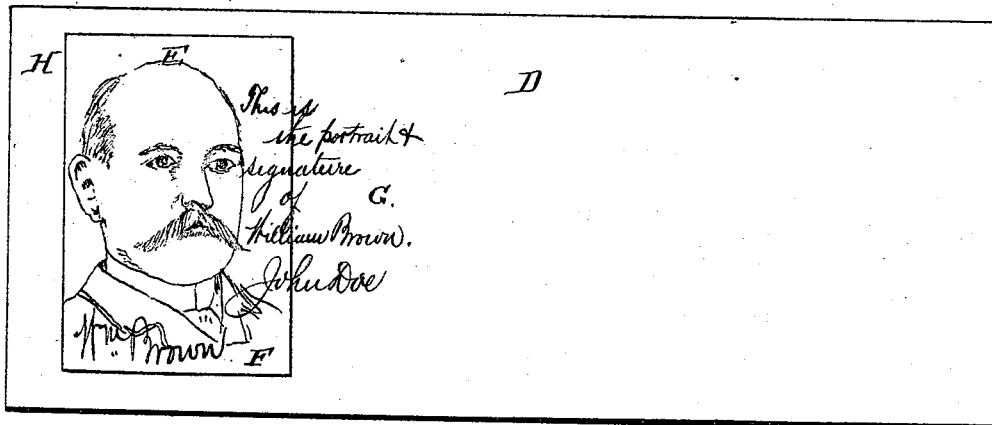 H
E
D
This is
the portrait &
signature
of
G.
William Brown.
John Doe
Wm. Brown
F